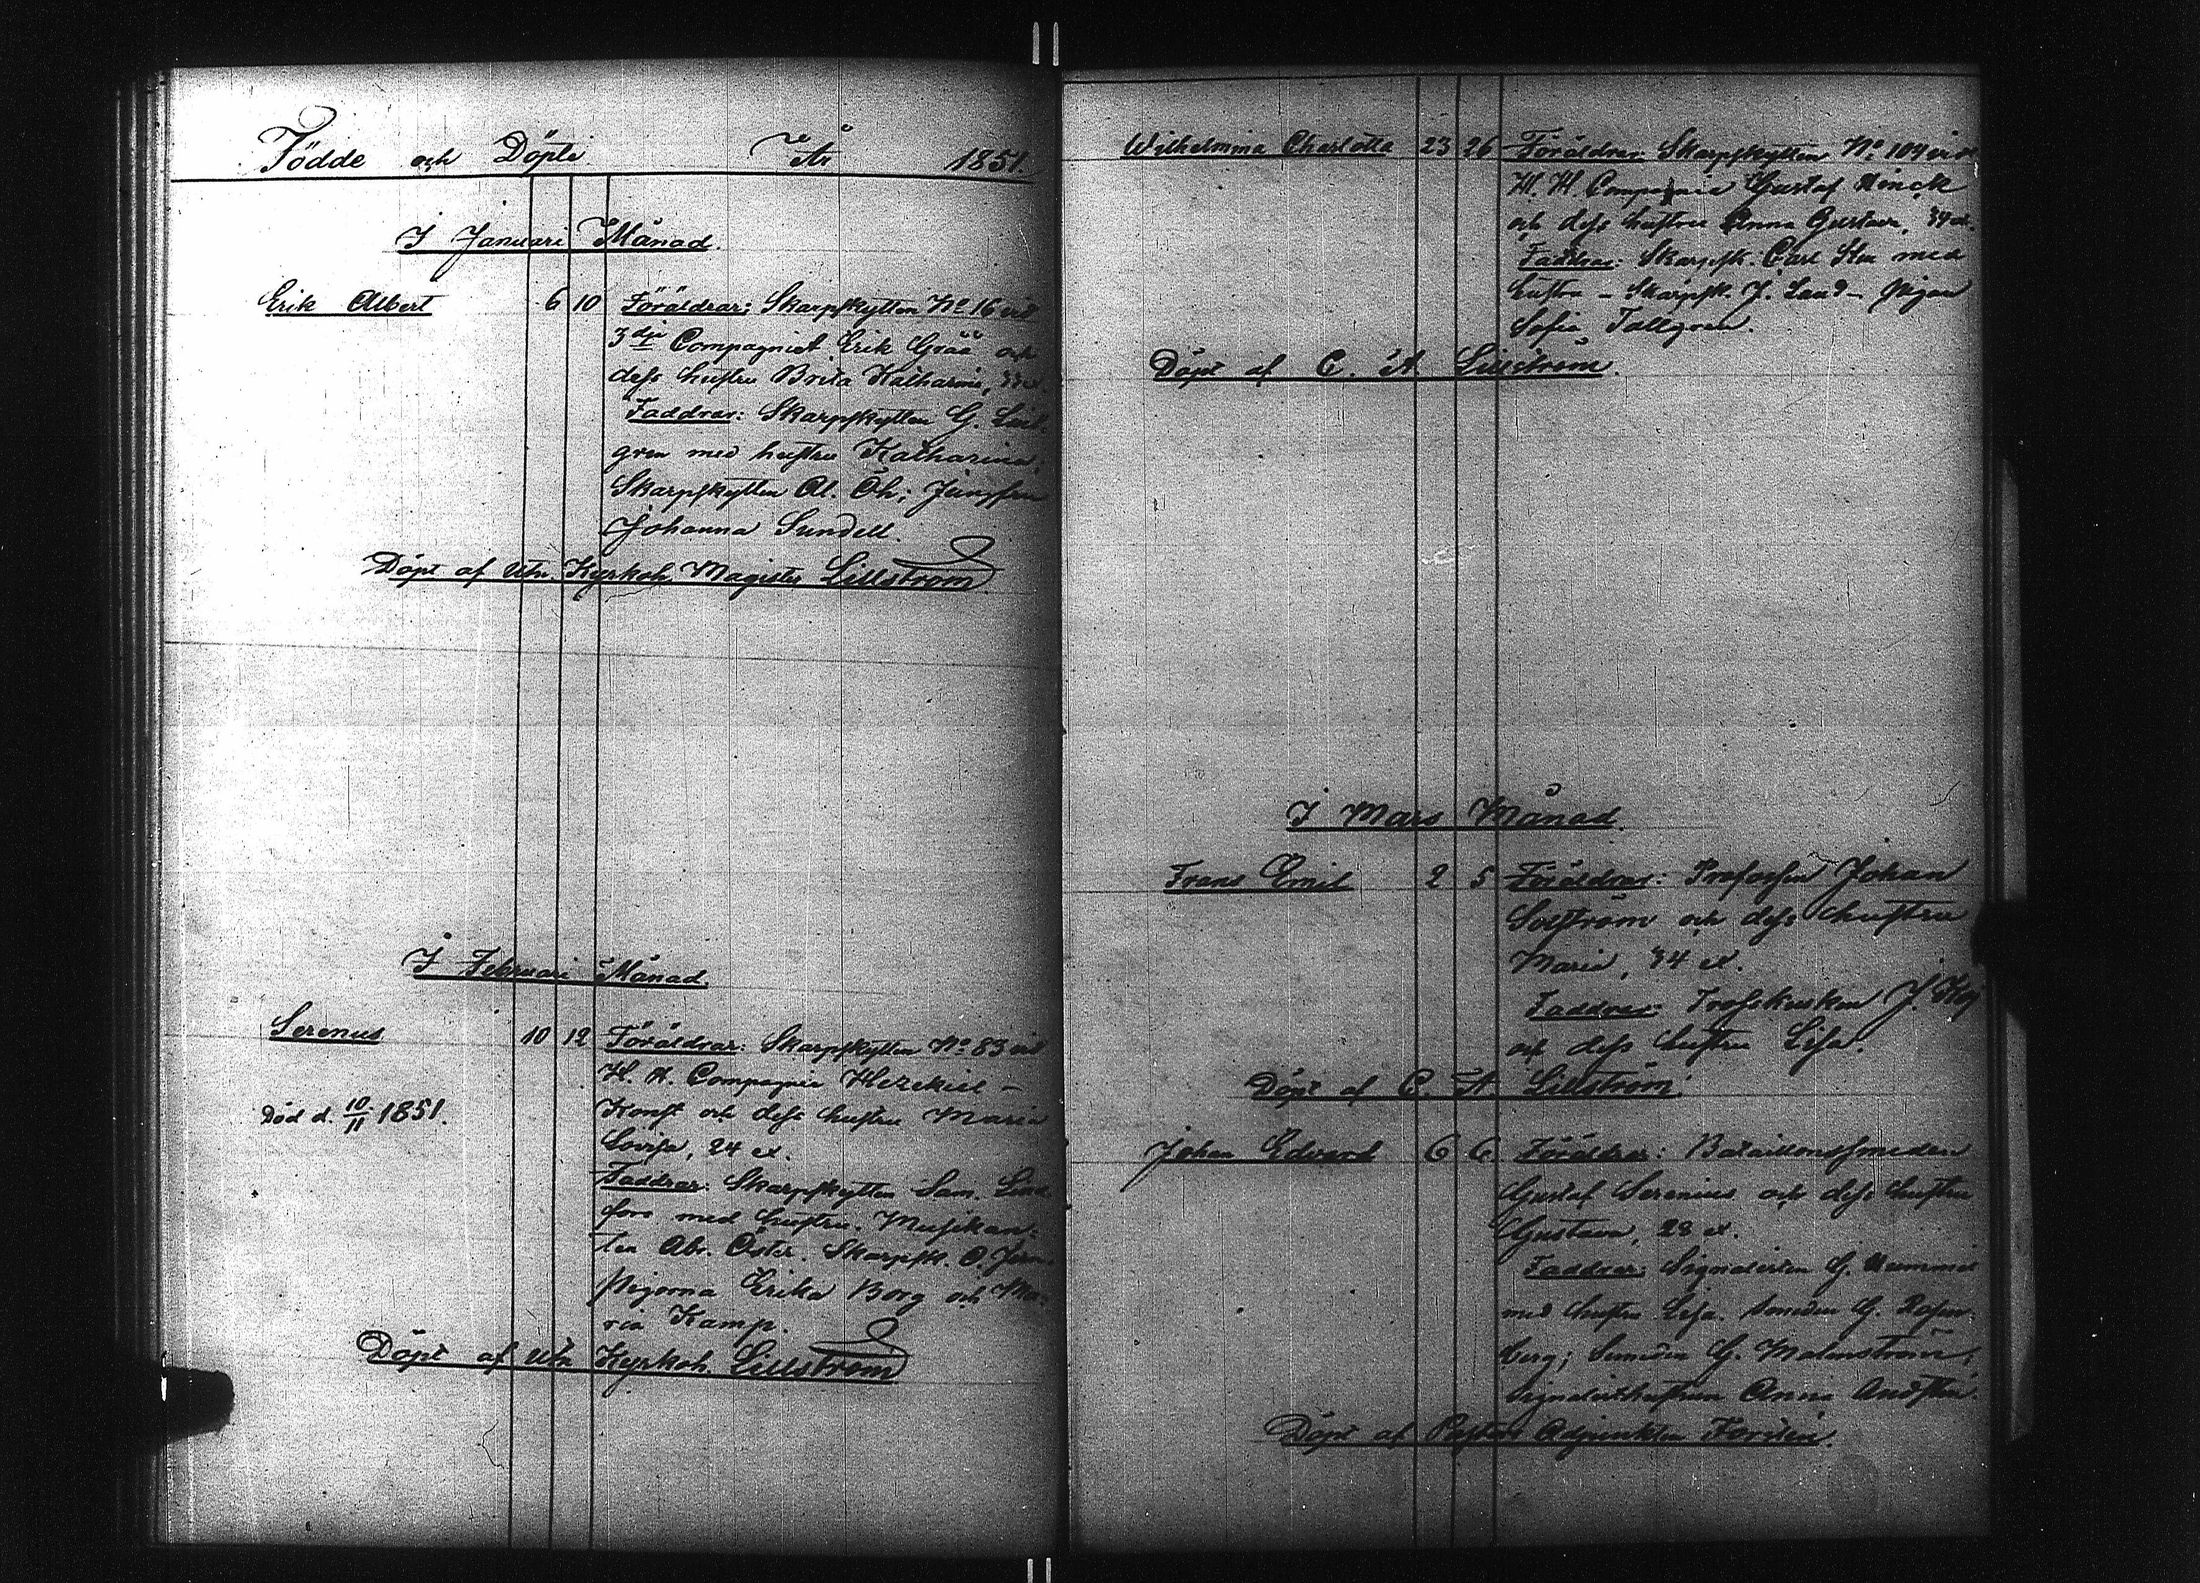 Födde och Döpte År 1851.
I Januari Månad.
Erik Albert 6 10 Föräldrar: Skarpskytten No 16 vid
3dje Compagniet Erik Grää och
dess hustru Brita Katharina, 33 .
Faddrar: Skarpskytten G. Lind-
gren med hustru Katharina,
Skarpskytten Al. Öh; Jungfru
Johanna Sundell.
Döpt af Utn. Kyrkoh. Magister Lillström
I Februari Månad.
Serenus 10 12 Föräldrar: Skarpskytten No 83 vid
H. H. Compagnie Hezekiel
Konst och dess hustru Maria
Död d. 10/11 1851.
Lovisa, 24 .
Faddrar: Skarpskytten Sam. Lind-
fors med hustru. Musikan-
ten Abr. Öster. Skarpsk. O.
Pigorna Erika Borg och Ma-
ria Kamp.
Döpt af Utn Kyrkoh. Lillström
Wilhelmina Charlotta 23 26 Föräldrar: Skarpskytten No 109 vid
H. H. Compagnie Gustaf Hinck
och dess hustru Anna Gustava, 34 .
Faddrar: Skarpsk. Carl Sten med
hustru - Skarpsk. J. Land - Pigan
Sofia Tallgren.
Döpt af C. A. Lillström.
I Mars Månad.
Frans Emil 2 5 Föräldrar: Profossen Johan
Solström och dess hustru
Maria, 34 .
Faddrar: Trosskusken J.
och dess hustru Lisa.
Döpt af C. A. Lillström.
Johan Edvard 6 6 Föräldrar: Bataillonssmeden
Gustaf Serenius och dess hustru
Gustava, 28 .
Faddrar: Signalisten G. Hummel
med hustru Lisa. Smeden G. Rosen-
berg; Smeden G. Malmström;
Signalisthustrun Anna
Döpt af Pastors Adjunkten Forselin.